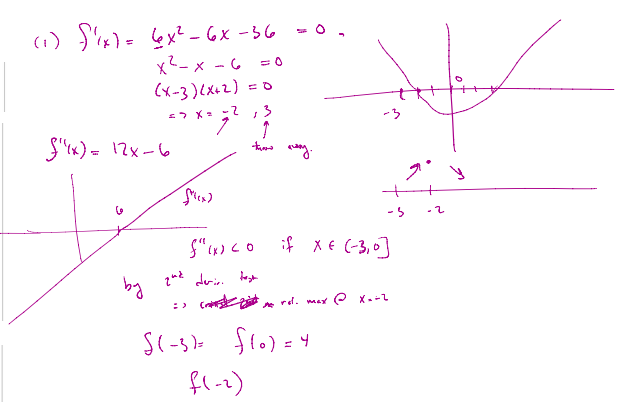 (1) f'(x) = 6x² - 6x - 36 = 0.
x² - x - 6 = 0
(x-3)(x+2) = 0
=> x = -2, 3
throw away.
f''(x) = 12x - 6
6
f''(x)
f''(x) < 0 if x ∈ (-3,0]
by 2nd deriv. test
=> rel. max @ x=-2
f(-3)= f(0) = 4
f(-2)
0
-3
-3 -2